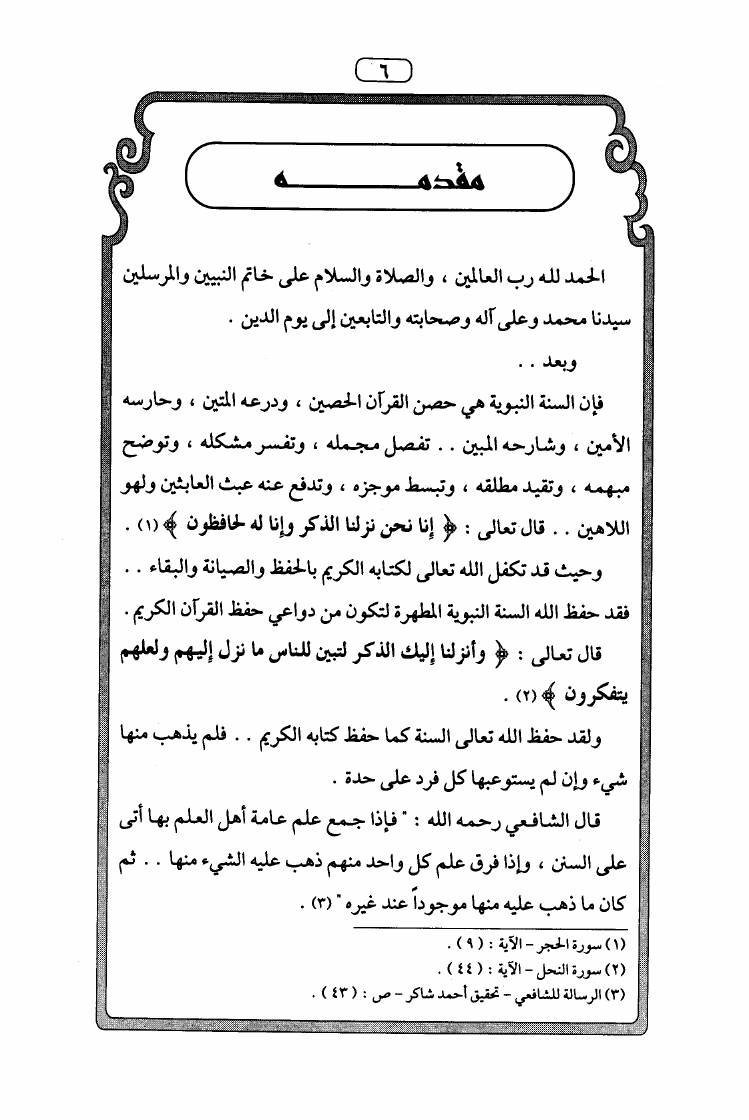 ٦
مقدمــــــــــــه
الحمد لله رب العالمين ، والصلاة والسلام على خاتم النبيين والمرسلين
سيدنا محمد وعلى آله وصحابته والتابعين إلى يوم الدين .
وبعد . .
فإن السنة النبوية هي حصن القرآن الحصين ، ودرعه المتين ، وحارسه
الأمين ، وشارحه المبين . . تفصل مجمله ، وتفسر مشكله ، وتوضح
مبهمه ، وتقيد مطلقه ، وتبسط موجزه ، وتدفع عنه عبث العابثين ولهو
اللاهين . . قال تعالى : ﴿ إنا نحن نزلنا الذكر وإنا له لحافظون ﴾ (١) .
وحيث قد تكفل الله تعالى لكتابه الكريم بالحفظ والصيانة والبقاء . .
فقد حفظ الله السنة النبوية المطهرة لتكون من دواعي حفظ القرآن الكريم .
قال تعالى : ﴿ وأنزلنا إليك الذكر لتبين للناس ما نزل إليهم ولعلهم
يتفكرون ﴾ (٢) .
ولقد حفظ الله تعالى السنة كما حفظ كتابه الكريم . . فلم يذهب منها
شيء وإن لم يستوعبها كل فرد على حدة .
قال الشافعي رحمه الله : " فإذا جمع علم عامة أهل العلم بها أتى
على السنن ، وإذا فرق علم كل واحد منهم ذهب عليه الشيء منها . . ثم
كان ما ذهب عليه منها موجوداً عند غيره " (٣) .
(١) سورة الحجر - الآية : ( ٩ ) .
(٢) سورة النحل - الآية : ( ٤٤ ) .
(٣) الرسالة للشافعي - تحقيق أحمد شاكر - ص : ( ٤٣ ) .